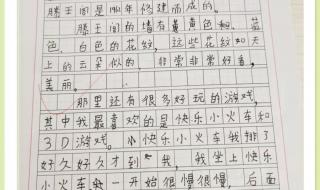 滕王间是1961年修建而成的。
滕王间的墙有黄黄色和、蓝
色、白色的花纹，这些花纹如天
上的云朵似的，非常非常好看，
美丽。
那里还有很多好玩的游戏，
其中我最喜欢的是快乐小火车和
3D游戏。小快乐小火车我排了
好久好久才到我，我坐上快乐
小火车 一开始很慢很慢，后面